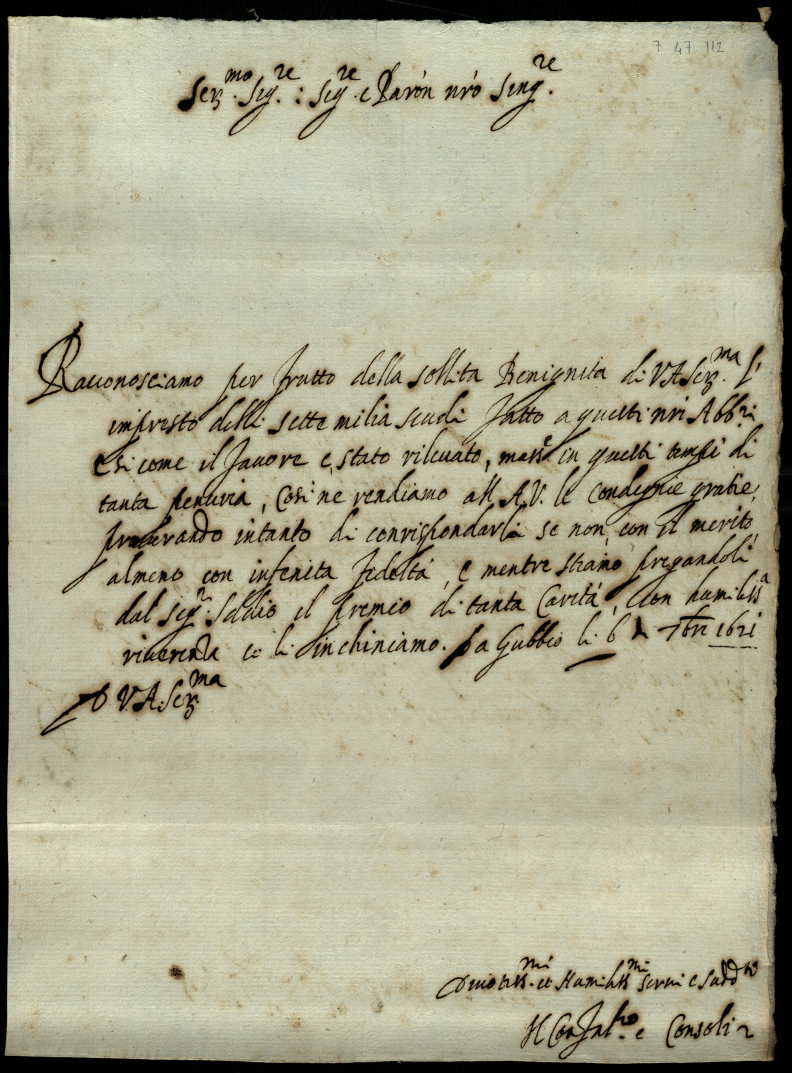 7 47 112
Ser.mo Sig.re : Sig.re e Paron nro Sing.re
Racconosciamo per frutto della sollita Benignita di V A Ser.ma l'
impresto delli sette milia scudi fatto a questi nri Abb.ti
E si come il favore e, stato rilevato, mass.e in questi tempi di
tanta penuria, Cosi ne rendiamo all A.V. le condegnie gratie,
procurando intanto di conrispondarli se non, con il merito
almeno con infenita fedeltà, e mentre stiamo pregandoli
dal Sig.r Iddio il premio di tanta Carità, con humiliss.a
riverenza ce li inchiniamo. Da Gubbio li 6 7bre 1621
D V.A. Ser.ma
Devotiss.mi et Humiliss.mi servi e sudd.
Il Confal.ro e Consoli